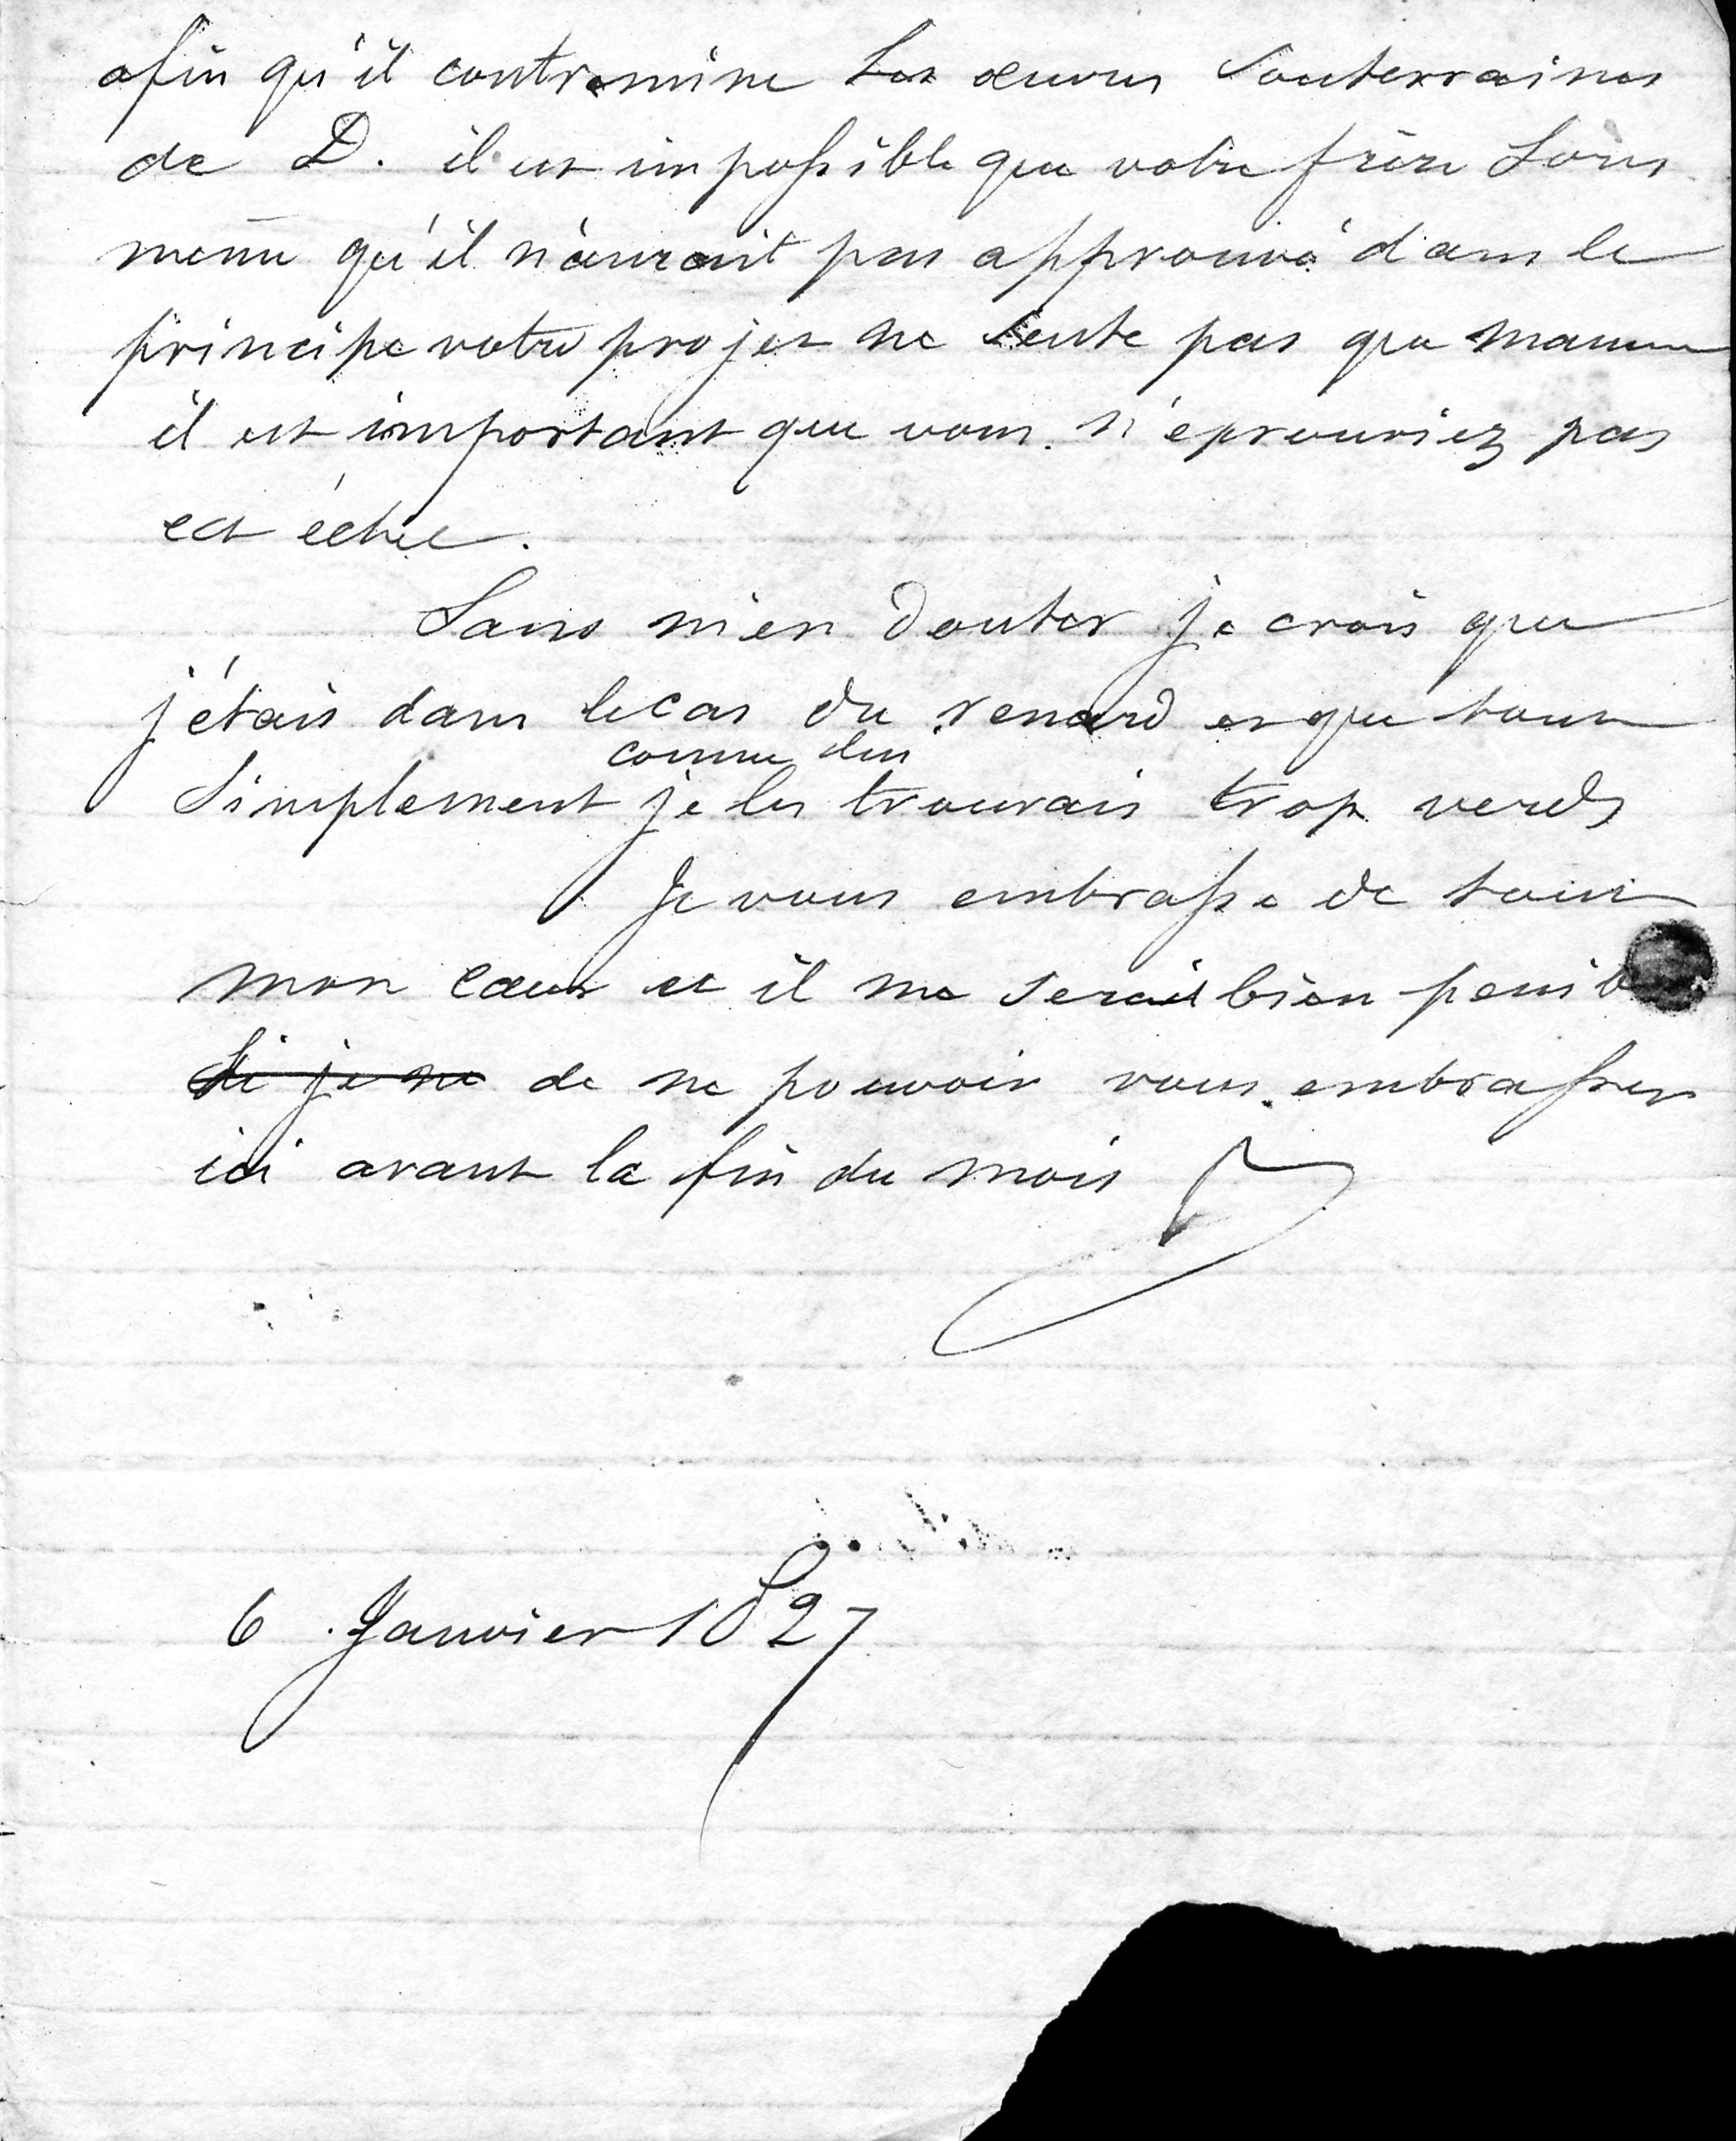 afin qu'il contremine les œuvres souterraines
de D. il est impossible que votre frère lors
même qu'il n'auroit pas approuvé dans le
principe votre projet ne sente pas que maman
il est important que vous n'éprouviez pas
cet échec.
Sans m'en douter je crois que
j'étais dans le cas du renard et que tout
comme lui
simplement je les trouvais trop verds
Je vous embrasse de tout
mon cœur et il me serait bien penib
si je ne de ne pouvoir vous embrasser
ici avant la fin du mois
6 Janvier 1827